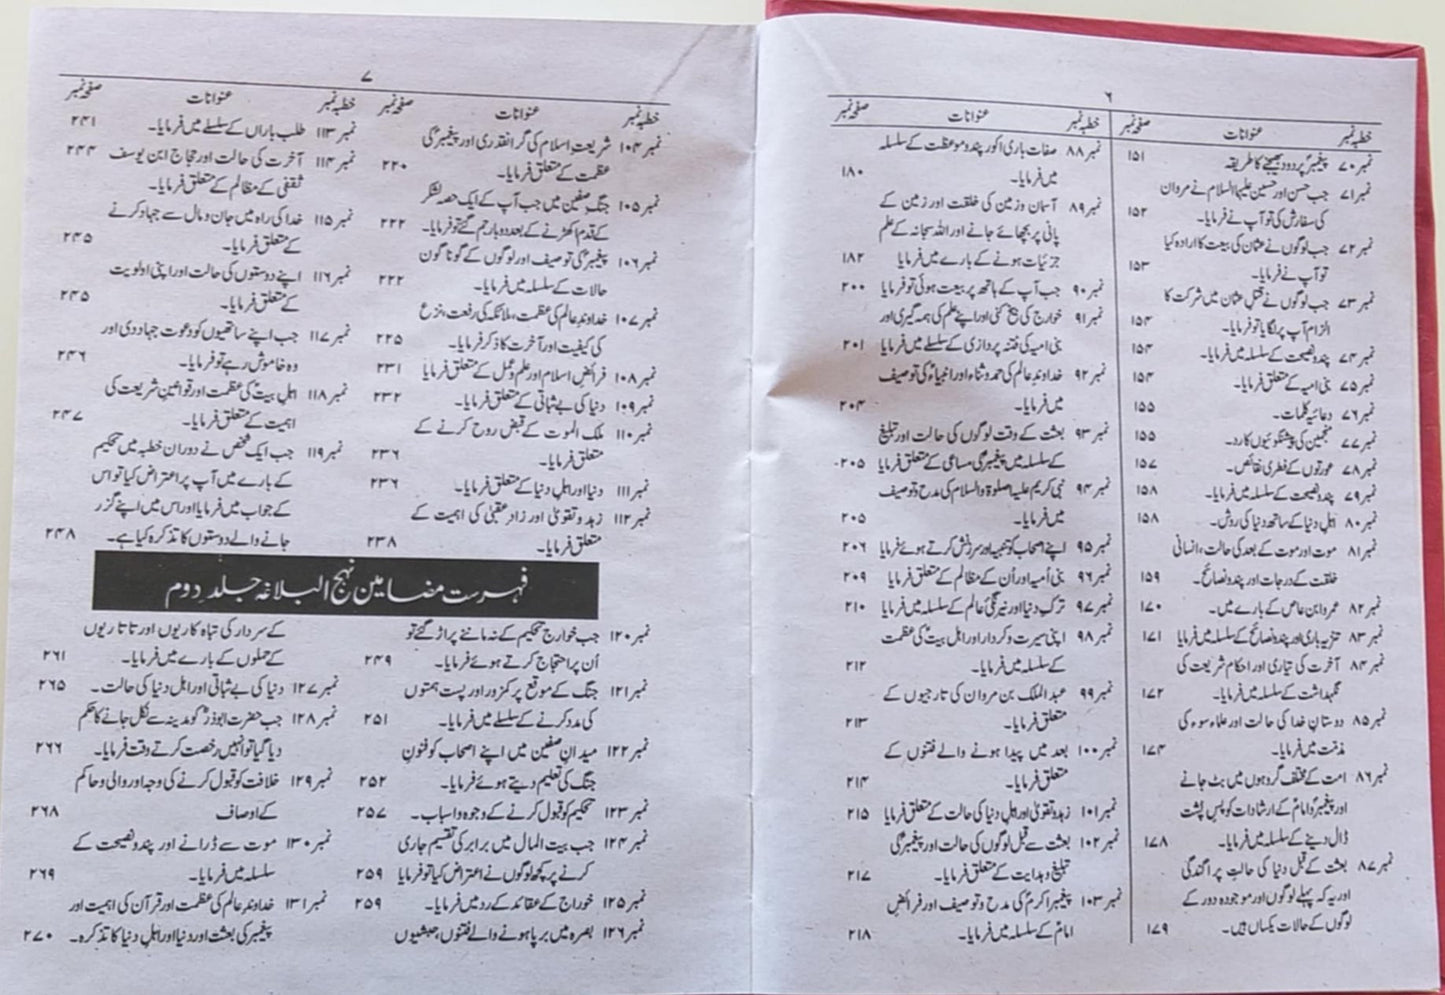 ۶
خطبہ نمبر عنوانات صفحہ نمبر
نمبر ۷۰ پیغمبرؐ پر درود بھیجنے کا طریقہ ۱۵۱
نمبر ۷۱ جب حسن اور حسین علیہا السلام نے مروان
کی سفارش کی تو آپ نے فرمایا۔ ۱۵۲
نمبر ۷۲ جب لوگوں نے عثمان کی بیعت کا ارادہ کیا
تو آپ نے فرمایا۔ ۱۵۳
نمبر ۷۳ جب لوگوں نے قتلِ عثمان میں شرکت کا
الزام آپ پر لگایا تو فرمایا۔ ۱۵۴
نمبر ۷۴ پند و نصیحت کے سلسلہ میں فرمایا۔ ۱۵۴
نمبر ۷۵ بنی امیہ کے متعلق فرمایا۔ ۱۵۴
نمبر ۷۶ دعائیہ کلمات۔ ۱۵۵
نمبر ۷۷ منجمین کی پیشگوئیوں کا رد۔ ۱۵۵
نمبر ۷۸ عورتوں کے فطری نقائص۔ ۱۵۷
نمبر ۷۹ پند و نصیحت کے سلسلہ میں فرمایا۔ ۱۵۸
نمبر ۸۰ اہلِ دنیا کے ساتھ دنیا کی روش۔ ۱۵۸
نمبر ۸۱ موت اور موت کے بعد کی حالت، انسانی
خلقت کے درجات اور پند و نصائح۔ ۱۵۹
نمبر ۸۲ عمرو ابن عاص کے بارے میں۔ ۱۷۰
نمبر ۸۳ تنزیہ باری اور پند و نصائح کے سلسلہ میں فرمایا ۱۷۱
نمبر ۸۴ آخرت کی تیاری اور احکام شریعت کی
نگہداشت کے سلسلہ میں فرمایا۔ ۱۷۲
نمبر ۸۵ دوستانِ خدا کی حالت اور علماء سوء کی
مذمت میں فرمایا۔ ۱۷۴
نمبر ۸۶ امت کے مختلف گروہوں میں بٹ جانے
اور پیغمبرؐ و امامؑ کے ارشادات کو پسِ پشت
ڈال دینے کے سلسلہ میں فرمایا۔ ۱۷۸
نمبر ۸۷ بعثت کے قبل دنیا کی حالتِ پراگندگی
اور یہ کہ پہلے لوگوں اور موجودہ دور کے
لوگوں کے حالات یکساں ہیں۔ ۱۷۹
خطبہ نمبر عنوانات صفحہ نمبر
نمبر ۸۸ صفات باری اکور پند و موعظت کے سلسلہ
میں فرمایا۔ ۱۸۰
نمبر ۸۹ آسمان و زمین کی خلقت اور زمین کے
پانی پر بچھائے جانے اور اللہ سبحانہ کے علم
جزئیات ہونے کے بارے میں فرمایا ۱۸۲
نمبر ۹۰ جب آپ کے ہاتھ پر بیعت ہوئی تو فرمایا ۲۰۰
نمبر ۹۱ خوارج کی بیخ کنی اور اپنے علم کی ہمہ گیری اور
بنی امیہ کی فتنہ پردازی کے سلسلے میں فرمایا ۲۰۱
نمبر ۹۲ خداوند عالم کی حمد و ثناء اور انبیاءؑ کی توصیف
میں فرمایا۔ ۲۰۴
نمبر ۹۳ بعثت کے وقت لوگوں کی حالت اور تبلیغ
کے سلسلہ میں پیغمبرؐ کی مساعی کے متعلق فرمایا ۲۰۵
نمبر ۹۴ نبی کریم علیہ اصلوۃ والسلام کی مدح و توصیف
میں فرمایا۔ ۲۰۵
نمبر ۹۵ اپنے اصحاب کو تنبیہ اور سرزنش کرتے ہوئے فرمایا ۲۰۶
نمبر ۹۶ بنی اُمیہ اور اُن کے مظالم کے متعلق فرمایا ۲۰۹
نمبر ۹۷ ترکِ دنیا اور نیرنگیٔ عالم کے سلسلہ میں فرمایا ۲۱۰
نمبر ۹۸ اپنی سیرت و کردار اور اہل بیتؑ کی عظمت
کے سلسلہ میں فرمایا۔ ۲۱۲
نمبر ۹۹ عبدالملک بن مروان کی تارجیوں کے
متعلق فرمایا۔ ۲۱۳
نمبر ۱۰۰ بعد میں پیدا ہونے والے فتنوں کے
متعلق فرمایا۔ ۲۱۴
نمبر ۱۰۱ زہد و تقویٰ اور اہلِ دنیا کی حالت کے متعلق فرمایا ۲۱۵
نمبر ۱۰۲ بعثت سے قبل لوگوں کی حالت اور پیغمبرؐ کی
تبلیغ و ہدایت کے متعلق فرمایا۔ ۲۱۷
نمبر ۱۰۳ پیغمبر اکرمؐ کی مدح و توصیف اور فرائضِ
امامؑ کے سلسلہ میں فرمایا۔ ۲۱۸
۷
خطبہ نمبر عنوانات صفحہ نمبر
نمبر ۱۰۴ شریعتِ اسلام کی گرانقدری اور پیغمبرؐ کی
عظمت کے متعلق فرمایا۔ ۲۲۰
نمبر ۱۰۵ جنگِ صفین میں جب آپ کے ایک حصہ لشکر
کے قدم اکھڑنے کے بعد دوبارہ جم گئے تو فرمایا۔ ۲۲۲
نمبر ۱۰۶ پیغمبرؐ کی توصیف اور لوگوں کے گوناگون
حالات کے سلسلہ میں فرمایا۔ ۲۲۲
نمبر ۱۰۷ خداوندِ عالم کی عظمت، ملائکہ کی رفعت، نزع
کی کیفیت اور آخرت کا ذکر فرمایا۔ ۲۲۵
نمبر ۱۰۸ فرائضِ اسلام اور علم و عمل کے متعلق فرمایا ۲۳۱
نمبر ۱۰۹ دنیا کی بے ثباتی کے متعلق فرمایا۔ ۲۳۲
نمبر ۱۱۰ ملک الموت کے قبض روح کرنے کے
متعلق فرمایا۔ ۲۳۶
نمبر ۱۱۱ دنیا اور اہلِ دنیا کے متعلق فرمایا۔ ۲۳۶
نمبر ۱۱۲ زہد و تقویٰ اور زادِ عقبیٰ کی اہمیت کے
متعلق فرمایا۔ ۲۳۸
خطبہ نمبر عنوانات صفحہ نمبر
نمبر ۱۱۳ طلب باراں کے سلسلے میں فرمایا۔ ۲۴۱
نمبر ۱۱۴ آخرت کی حالت اور حجاج ابن یوسف
ثقفی کے مظالم کے متعلق فرمایا۔ ۲۴۴
نمبر ۱۱۵ خدا کی راہ میں جان و مال سے جہاد کرنے
کے متعلق فرمایا۔ ۲۴۵
نمبر ۱۱۶ اپنے دوستوں کی حالت اور اپنی اولویت
کے متعلق فرمایا۔ ۲۴۵
نمبر ۱۱۷ جب اپنے ساتھیوں کو دعوت جہاد دی اور
وہ خاموش رہے تو فرمایا۔ ۲۴۶
نمبر ۱۱۸ اہلِ بیتؑ کی عظمت اور قوانینِ شریعت کی
اہمیت کے متعلق فرمایا۔ ۲۴۷
نمبر ۱۱۹ جب ایک شخص نے دوران خطبہ میں تحکیم
کے بارے میں آپ پر اعتراض کیا تو اس
کے جواب میں فرمایا اور اس میں اپنے گزر
جانے والے دوستوں کا تذکرہ کیا ہے۔ ۲۴۸
فہرست مضامین نہج البلاغہ جلد دوم
نمبر ۱۲۰ جب خوارج تحکیم کے نہ ماننے پر اڑ گئے تو
اُن پر احتجاج کرتے ہوئے فرمایا۔ ۲۴۹
نمبر ۱۲۱ جنگ کے موقع پر کمزور اور پست ہمتوں
کی مدد کرنے کے سلسلے میں فرمایا۔ ۲۵۱
نمبر ۱۲۲ میدانِ صفین میں اپنے اصحاب کو فنونِ
جنگ کی تعلیم دیتے ہوئے فرمایا۔ ۲۵۲
نمبر ۱۲۳ تحکیم کو قبول کرنے کے وجوہ و اسباب۔ ۲۵۷
نمبر ۱۲۴ جب بیت المال میں برابر کی تقسیم جاری
کرنے پر کچھ لوگوں نے اعتراض کیا تو فرمایا ۲۵۹
نمبر ۱۲۵ خوراج کے عقائد کے رد میں فرمایا۔ ۲۵۹
نمبر ۱۲۶ بصرہ میں برپا ہونے والے فتنوں حبشیوں
کے سردار کی تباہ کاریوں اور تاتاریوں
کے حملوں کے بارے میں فرمایا۔ ۲۶۱
نمبر ۱۲۷ دنیا کی بے ثباتی اور اہل دنیا کی حالت۔ ۲۶۵
نمبر ۱۲۸ جب حضرت ابوذرؓ کو مدینہ سے نکل جانے کا حکم
دیا گیا تو انہیں رخصت کرتے وقت فرمایا۔ ۲۶۶
نمبر ۱۲۹ خلافت کو قبول کرنے کی وجہ اور والی و حاکم
کے اوصاف ۲۶۸
نمبر ۱۳۰ موت سے ڈرانے اور پند و نصیحت کے
سلسلہ میں فرمایا۔ ۲۶۹
نمبر ۱۳۱ خداوندِ عالم کی عظمت اور قرآن کی اہمیت اور
پیغمبرؐ کی بعثت اور دنیا اور اہلِ دنیا کا تذکرہ۔ ۲۷۰